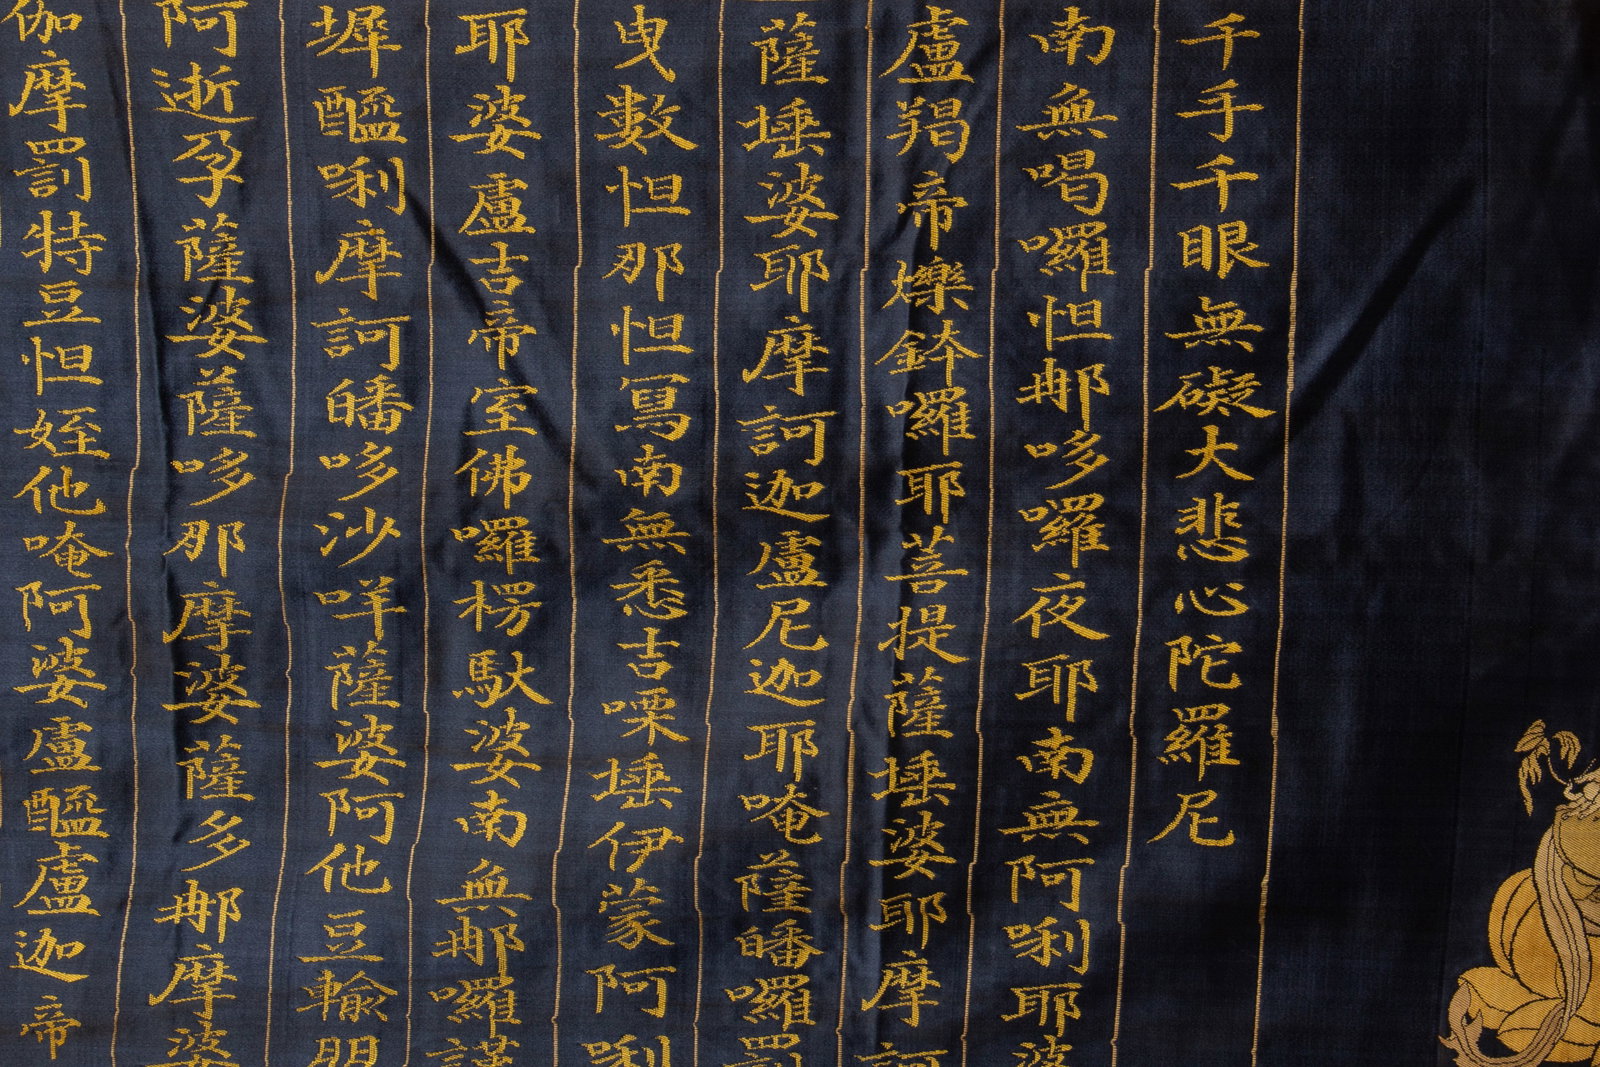 千手千眼無礙大悲心陀羅尼
南無喝囉怛那哆囉夜耶南無阿唎耶婆
盧羯帝爍鉢囉耶菩提薩埵婆耶摩訶
薩埵婆耶摩訶迦盧尼迦耶唵薩皤囉罰
曳數怛那怛寫南無悉吉㗚埵伊蒙阿唎
耶婆盧吉帝室佛囉楞馱婆南無那囉謹
墀醯唎摩訶皤哆沙咩薩婆阿他豆輸朋
阿逝孕薩婆薩哆那摩婆薩多那摩婆
伽摩罰特豆怛姪他唵阿婆盧醯盧迦帝